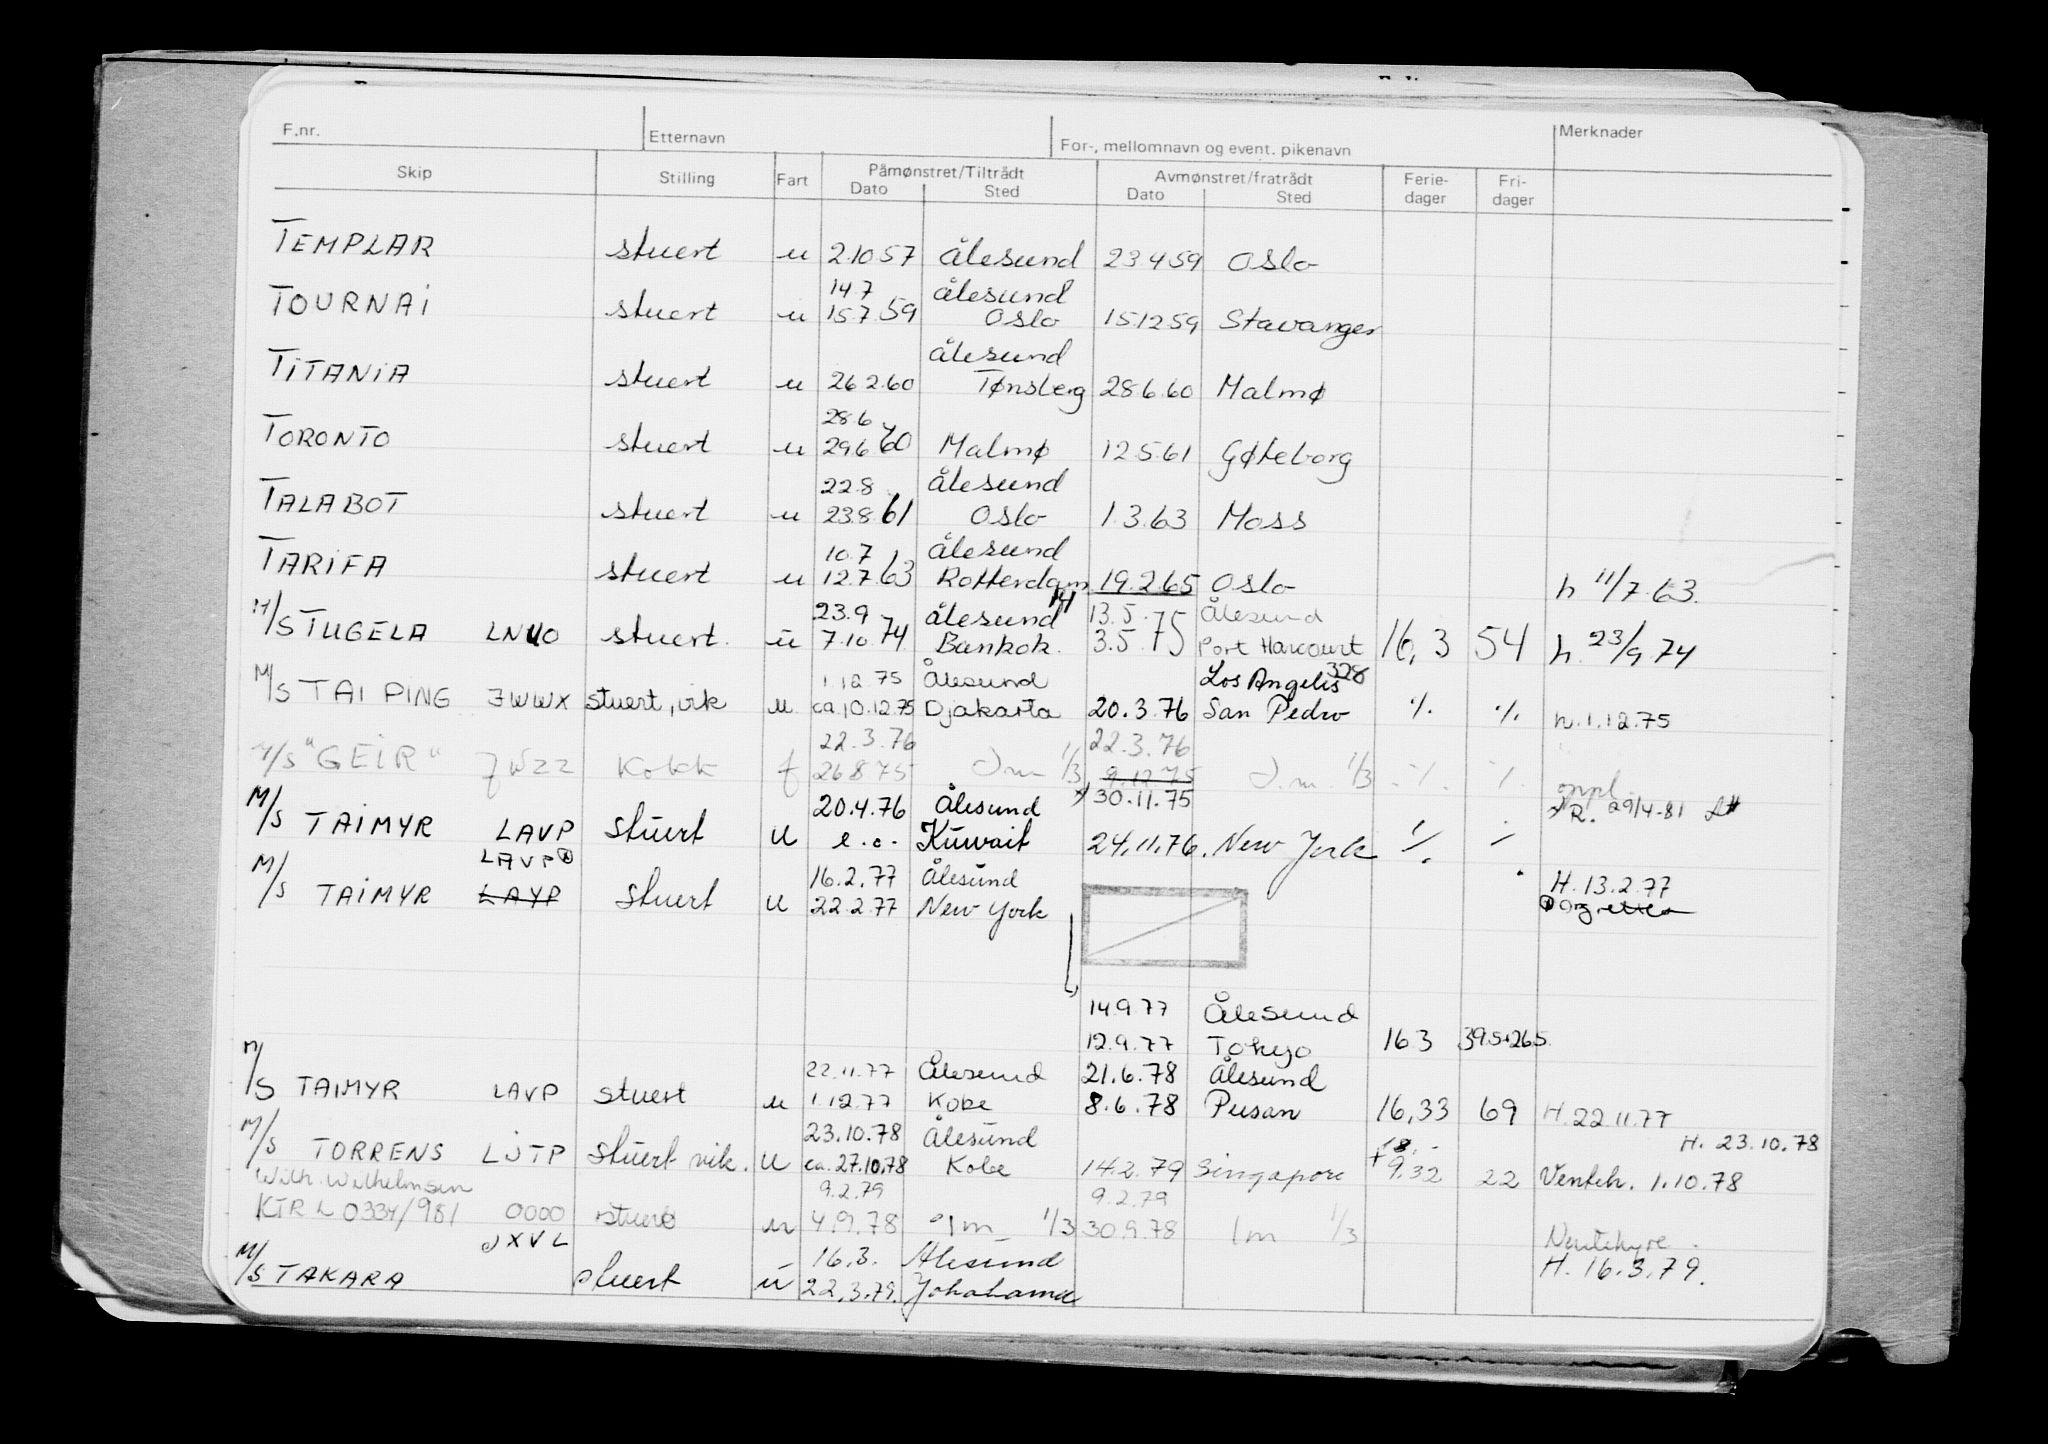 F.nr. Etternavn For-, mellomnavn og event. pikenavn Merknader
Skip Stilling Fart Påmønstret/Tiltrådt Avmønstret/fratrådt Ferie- Fri-
Dato Sted Dato Sted dager dager
TEMPLAR stuert u 2.10 57 Ålesund 23 4 59 Oslo
14 7 Ålesund
TOURNAI stuert u 15 7. 59 Oslo 15 12 59 Stavanger
Ålesund
TITANIA stuert u 26 2.60 Tønsberg 28 6.60 Malmø
28 6
TORONTO stuert u 29 6 60 Malmø 12.5.61 Gøteborg
22.8. Ålesund
TALABOT stuert u 23.8.61 Oslo 1.3.63 Moss
10.7 Ålesund
TARIFA stuert u 12.7.63 Rotterdam 19.2.65 Oslo h 11/7.63.
23.9 Ålesund 13.5.75 Ålesund
M/S TUGELA LNUO stuert. u 7.10.74 Bankok. 3.5.75 Port Harcourt 16,3 54 h. 23/9 74
1.12.75 Ålesund Los Angelis 328
M/S TAI PING JWWX stuert, vik u ca. 10.12.75 Djakarta 20.3.76 San Pedro ·/. ·/. h. 1.12.75
22.3.76 22.3.76
M/S "GEIR" JWZZ Kokk f 26 8 75 I.m 1/3 9.12.75 I.m. 1/3 ·/. ·/. oppl.
20.4.76 Ålesund 30.11.75 R. 29/4-81
M/S TAIMYR LAVP stuert u e.o. Kuwait 24.11.76. New York ·/.
LAVP 16.2.77 Ålesund H. 13.2.77
M/S TAIMYR LAYP stuert u 22.2.77 New York
14.9.77 Ålesund
12.9.77 Tokyo 16 3 39.5+26.5
22.11.77 Ålesund 21.6.78 Ålesund
M/S TAIMYR LAVP stuert u 1.12.77 Kobe 8.6.78 Pusan 16,33 69 H. 22.11.77
23.10.78 Ålesund 18.- H. 23.10.78
M/S TORRENS LJTP stuert vik. u ca. 27.10.78 Kobe 14.2.79 Singapore +9,32 22 Venteh. 1.10.78
Wilh. Wilhelmsen 9.2.79 9.2.79
KTR L 0334/981 0000 stuert u 4.9.78 Im 1/3 30.9.78 Im 1/3 Ventehyre.
JXVL 16.3. Ålesund H. 16.3.79.
M/S TAKARA stuert u 22.3.79. Yohohama